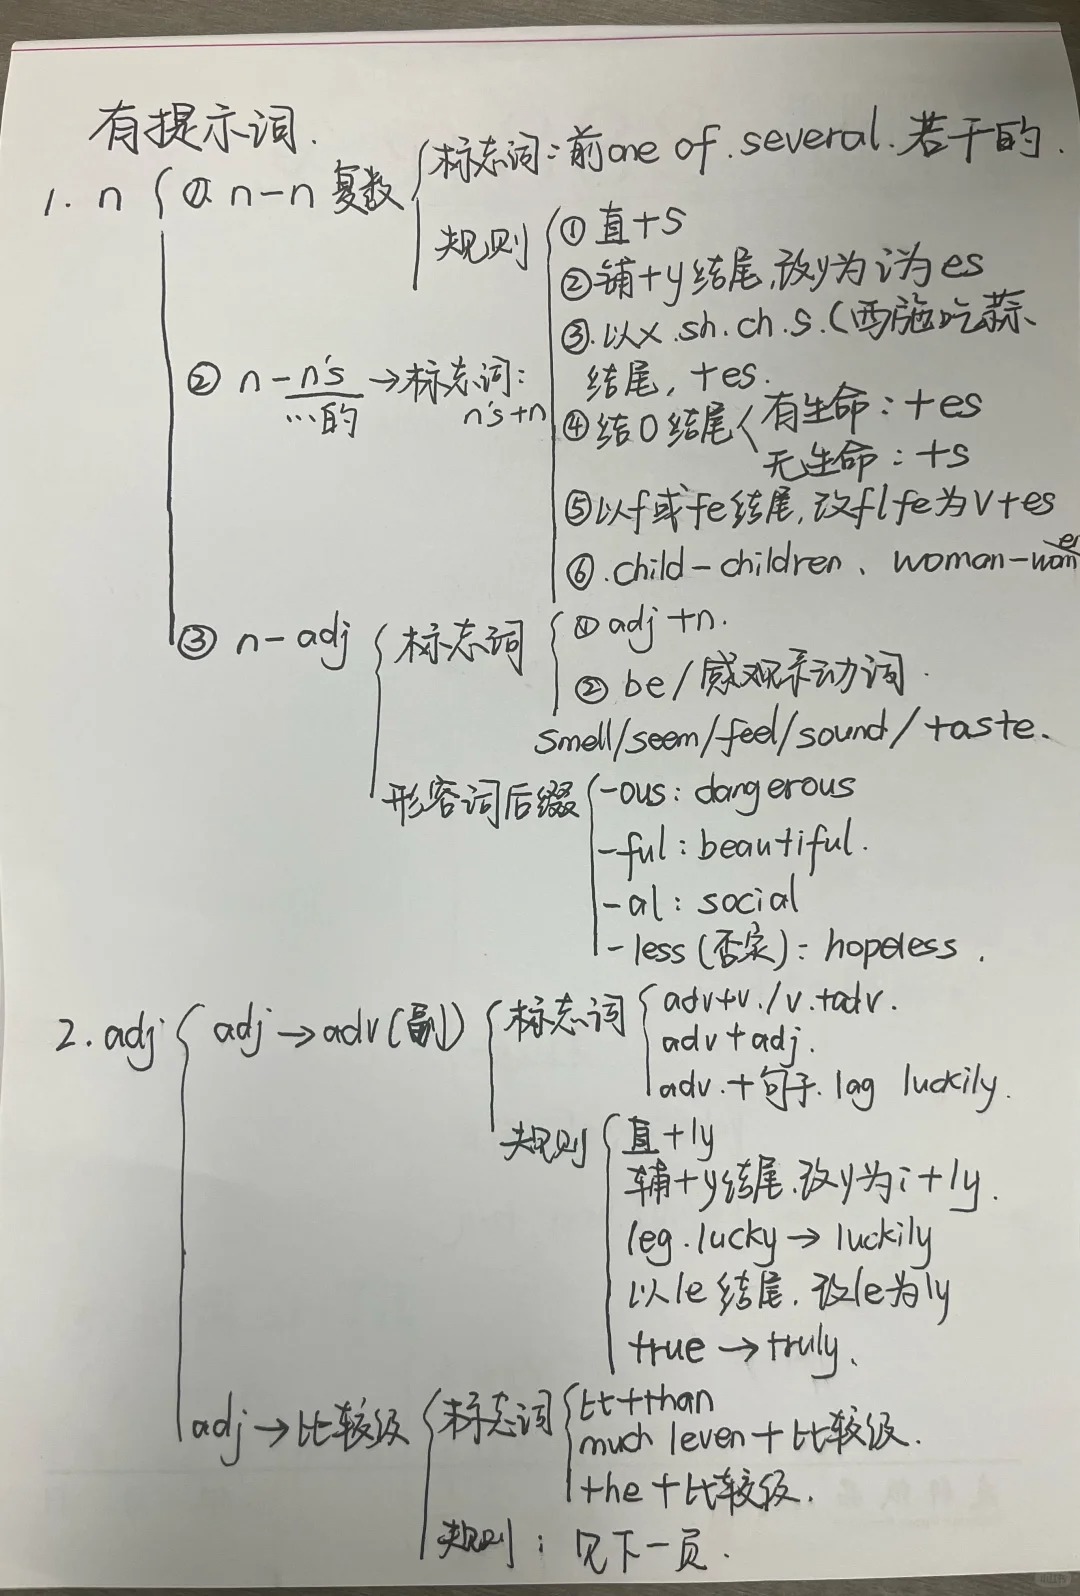 有提示词.
1. n ① n-n 复数 标志词:前one of. several. 若干的.
规则 ① 直+s
② 辅+y结尾,改y为i为es
③.以x.sh.ch.s.(西施吃蒜
结尾, +es.
② n-n's →标志词:
…的 n's+n
④结O结尾 有生命: +es
无生命: +s
⑤以f或fe结尾,改f/fe为v+es
⑥.child-children、woman-women
③ n-adj 标志词 ① adj+n.
② be/感观系动词.
smell/seem/feel/sound/taste.
形容词后缀 -ous: dangerous
-ful: beautiful.
-al: social
-less(否定): hopeless.
2. adj adj→adv(副) 标志词 adv+v./v.+adv.
adv+adj.
adv.+句子. lag luckily.
规则 直+ly
辅+y结尾.改y为i+ly.
leg.lucky→luckily
以le结尾.改le为ly
true→truly.
adj→比较级 标志词 比+than
much leven+比较级.
the+比较级.
规则: 见下一页.